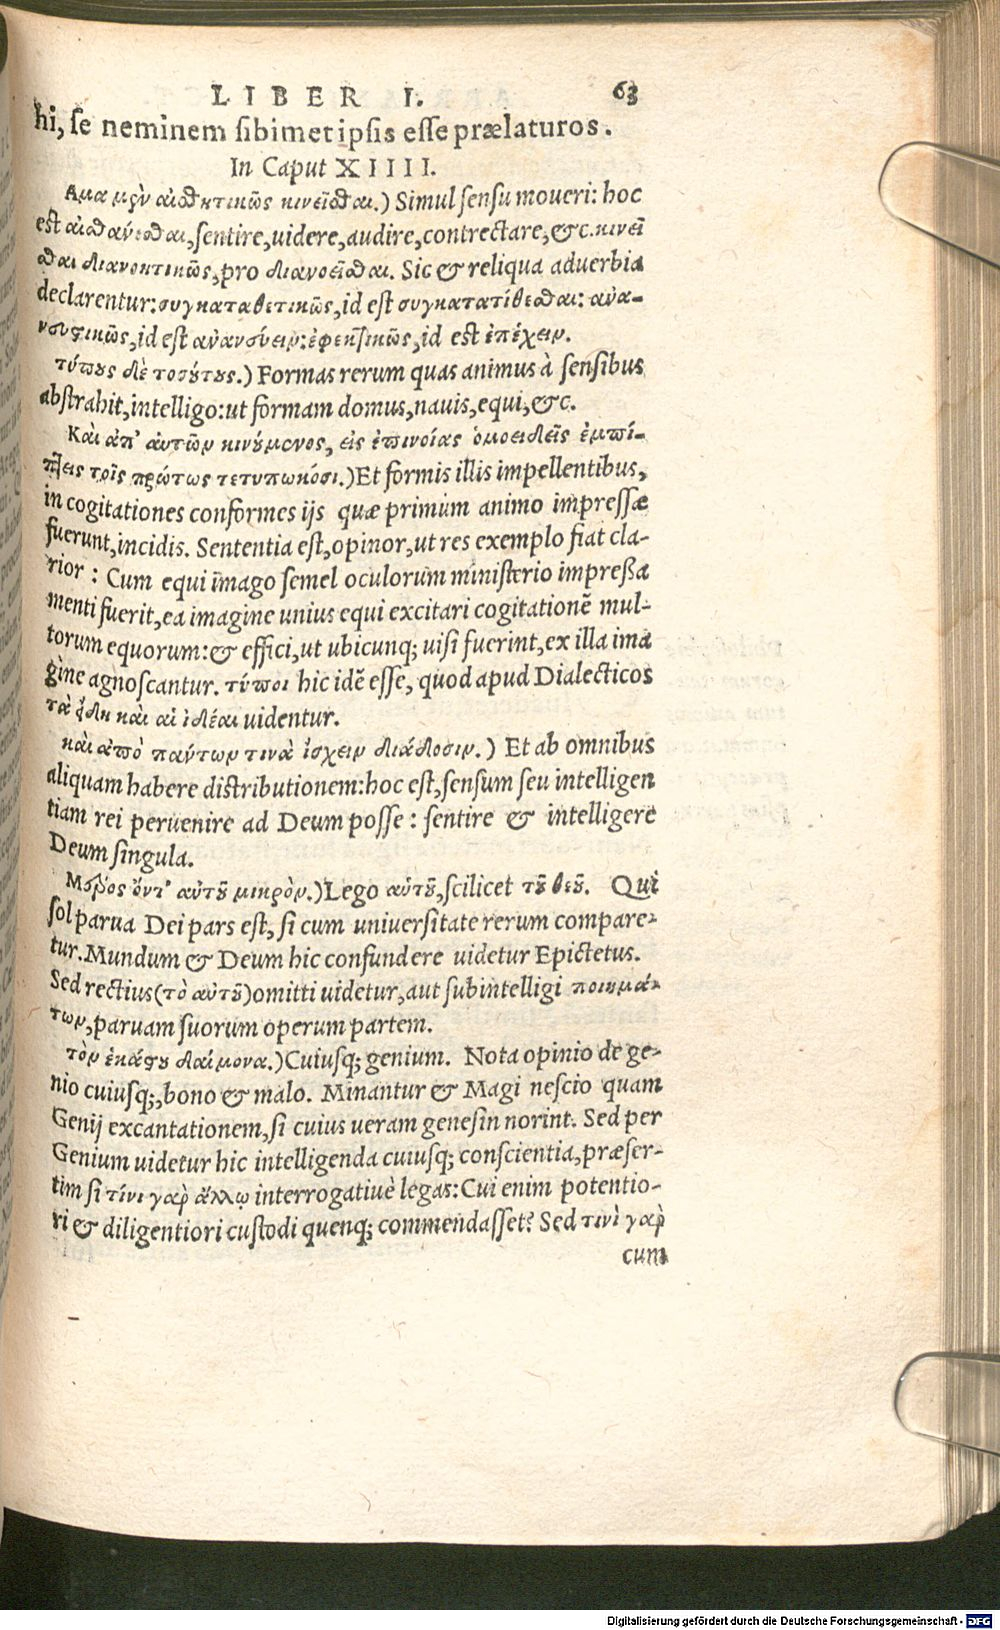 LIBER I. 63
hi, ſe neminem ſibimetipſis eſſe prælaturos.
In Caput XIIII.
Αμα μὲν αἰσθητικῶς κινεῖσθαι.) Simul ſenſu moueri: hoc
eſt αἰσθάνεσθαι, ſentire, uidere, audire, contrectare, &c. κινεῖ
σθαι διανοητικῶς, pro διανοεῖσθαι. Sic & reliqua aduerbia
declarentur: συγκαταθετικῶς, id eſt συγκατατίθεσθαι: ἀνα-
νευστικῶς, id eſt ἀνανεύειν: ἐφεκτικῶς, id eſt ἐπέχειν.
τύπους δὲ τοσούτους.) Formas rerum quas animus à ſenſibus
abſtrahit, intelligo: ut formam domus, nauis, equi, &c.
Καὶ ἀπ' αὐτῶν κινούμενος, εἰς ἐπινοίας ὁμοειδεῖς ἐμπί-
πτεις τοῖς πρώτως τετυπωκόσι.) Et formis illis impellentibus,
in cogitationes conformes ijs quæ primùm animo impreſſæ
fuerunt, incidis. Sententia eſt, opinor, ut res exemplo fiat cla-
rior: Cum equi imago ſemel oculorum miniſterio impreßa
menti fuerit, ea imagine unius equi excitari cogitationē mul-
torum equorum: & effici, ut ubicunq; uiſi fuerint, ex illa ima
gine agnoſcantur. τύποι hic idē eſſe, quod apud Dialecticos
τὰ εἴδη καὶ αἱ ἰδέαι uidentur.
καὶ ἀπὸ πάντων τινὰ ἴσχειν διάδοσιν.) Et ab omnibus
aliquam habere diſtributionem: hoc eſt, ſenſum ſeu intelligen
tiam rei peruenire ad Deum poſſe: ſentire & intelligere
Deum ſingula.
Μέρος ὄντ' αὐτοῦ μικρὸν.) Lego αὐτοῦ, ſcilicet τοῦ θεοῦ. Qui
ſol parua Dei pars eſt, ſi cum uniuerſitate rerum compare-
tur. Mundum & Deum hic confundere uidetur Epictetus.
Sed rectius (τὸ αὐτοῦ) omitti uidetur, aut ſubintelligi ποιημά-
των, paruam ſuorum operum partem.
τὸν ἑκάστου δαίμονα.) Cuiuſq; genium. Nota opinio de ge-
nio cuiuſq;, bono & malo. Minantur & Magi neſcio quam
Genij excantationem, ſi cuius ueram geneſin norint. Sed per
Genium uidetur hic intelligenda cuiuſq; conſcientia, præſer-
tim ſi τίνι γὰρ ἄλλῳ interrogatiuè legas: Cui enim potentio-
ri & diligentiori cuſtodi quenq; commendaſſet? Sed τινὶ γὰρ
cum
Digitalisierung gefördert durch die Deutsche Forschungsgemeinschaft - DFG